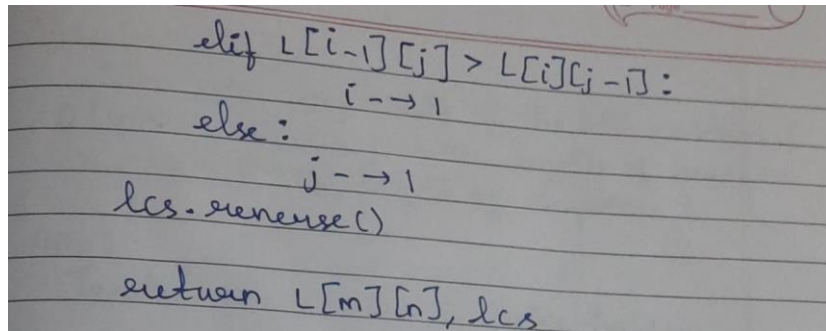 elif L[i-1][j] > L[i][j-1]:
i -→ 1
else:
j -→ 1
lcs.reverse()
return L[m][n], lcs